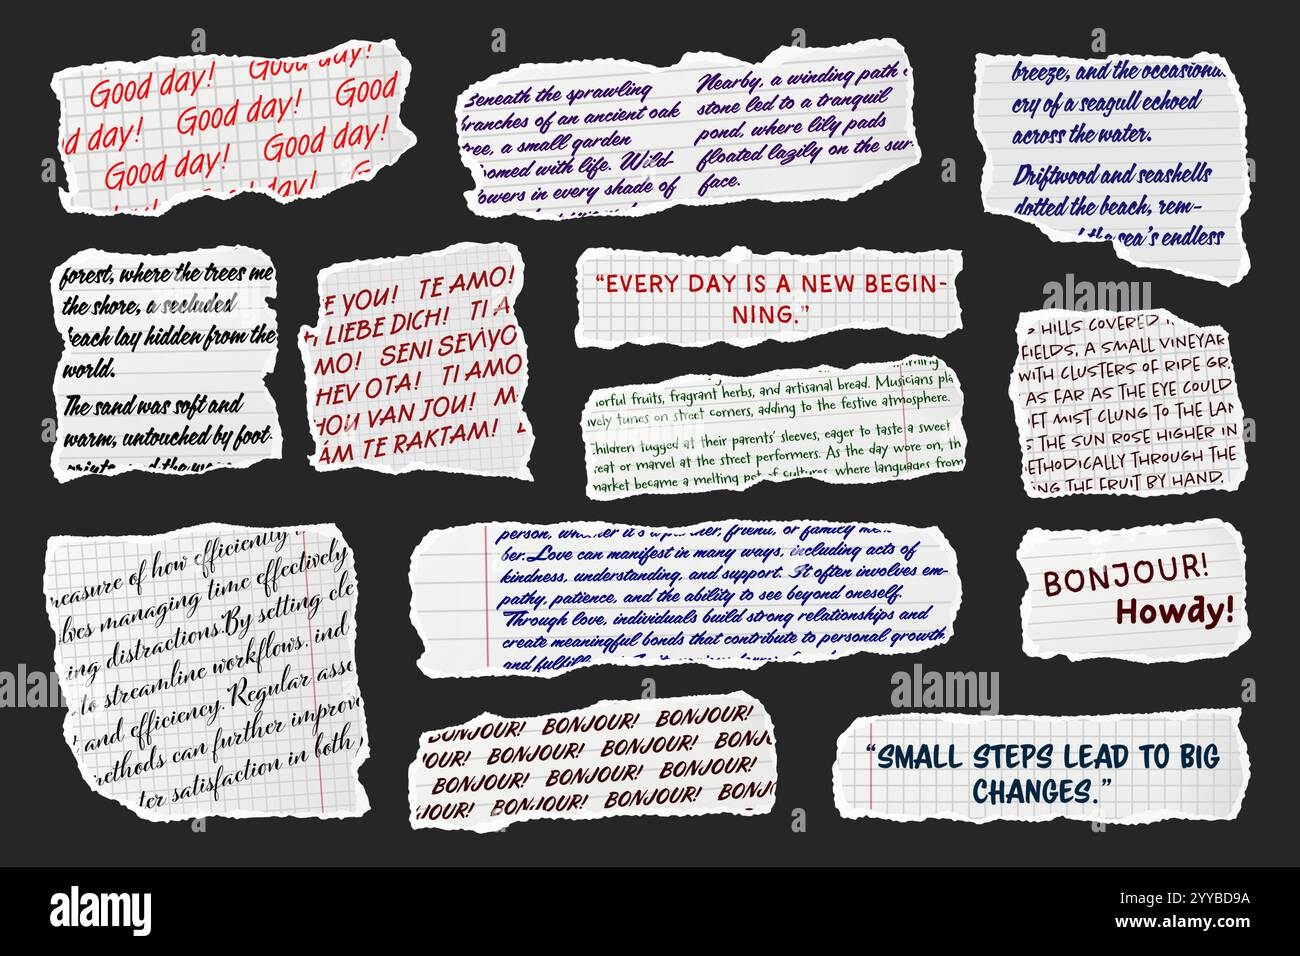 Good day!
Good day! Good day! Good
day! Good day! Good day!
Good day!
Beneath the sprawling
branches of an ancient oak
tree, a small garden
oomed with life. Wild-
owers in every shade of
Nearby, a winding path
stone led to a tranquil
pond, where lily pads
floated lazily on the sur-
face.
breeze, and the occasiona
cry of a seagull echoed
across the water.
Driftwood and seashells
dotted the beach, rem-
the sea's endless
forest, where the trees me
the shore, a secluded
beach lay hidden from the
world.
The sand was soft and
warm, untouched by foot-
E YOU! TE AMO!
LIEBE DICH! TI A
MO! SENI SEVİYO
HEV OTA! TI AMO
HOU VAN JOU! M
ÁM TE RAKTAM!
“EVERY DAY IS A NEW BEGIN-
NING.”
orful fruits, fragrant herbs, and artisanal bread. Musicians pla
vely tunes on street corners, adding to the festive atmosphere.
Children tugged at their parents' sleeves, eager to taste a sweet
reat or marvel at the street performers. As the day wore on, th
market became a melting pot of cultures, where languages from
HILLS COVERED
FIELDS, A SMALL VINEYAR
WITH CLUSTERS OF RIPE GR
AS FAR AS THE EYE COULD
FT MIST CLUNG TO THE LAN
THE SUN ROSE HIGHER IN
ETHODICALLY THROUGH THE
NG THE FRUIT BY HAND.
reasure of how efficiently
lves managing time effectively
ing distractions.By setting cle
to streamline workflows. ind
and efficiency. Regular asse
methods can further improve
ter satisfaction in both
person, whether it's a partner, friend, or family mem-
ber.Love can manifest in many ways, including acts of
kindness, understanding, and support. It often involves em-
pathy, patience, and the ability to see beyond oneself.
Through love, individuals build strong relationships and
create meaningful bonds that contribute to personal growth,
and
BONJOUR!
Howdy!
BONJOUR! BONJOUR! BONJOUR!
OUR! BONJOUR! BONJOUR! BONJ
BONJOUR! BONJOUR! BONJOUR!
JOUR! BONJOUR! BONJOUR! BON
“SMALL STEPS LEAD TO BIG
CHANGES.”
alamy
Image ID: 2YYBD9A
www.alamy.com